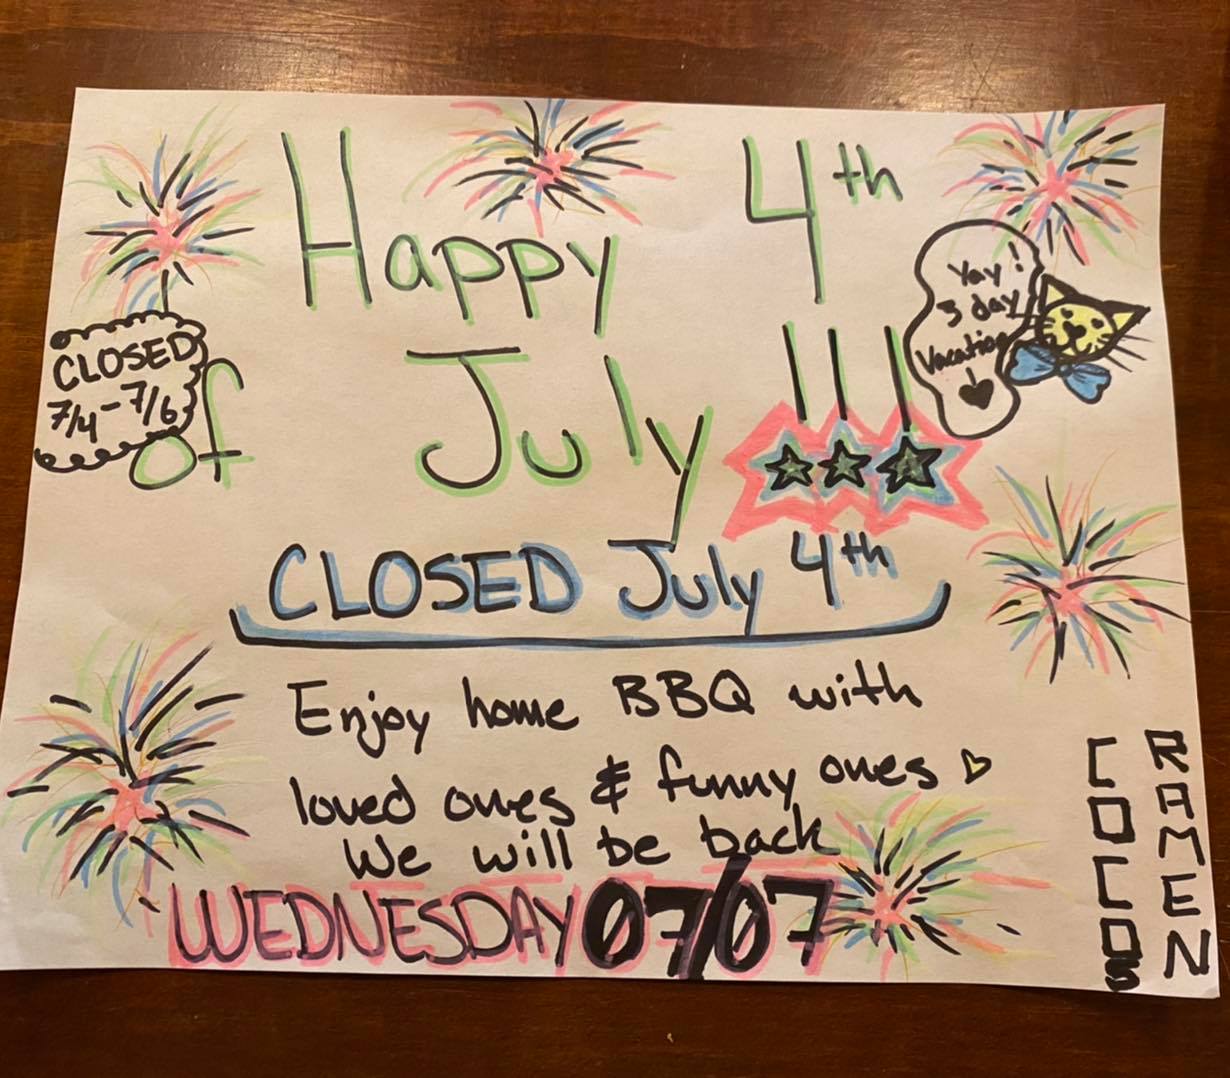 Happy 4th
of July!!!
CLOSED
7/4-7/6
Yay!
3 day
Vacation
CLOSED July 4th
Enjoy home BBQ with
loved ones & funny ones
We will be back
WEDNESDAY 07/07
COCOS
RAMEN